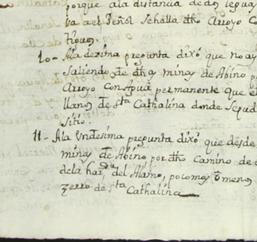 porque ala distancia de dos leguas
va a el Peñol se halla dho Arroyo Co
tiguo.
10 - Ala dezima pregunta dixo que no ay
Saliendo de dhas minas de Abino p
Arroyo con Agua permanente que e
llano de Sta Cathalina donde se pud
sitio.
11 - Ala Undesima pregunta dixo que desde
minas de Abino por dho Camino de
dela haz.da del Alamo, poco mas o menos
zerro de Sta Cathalina